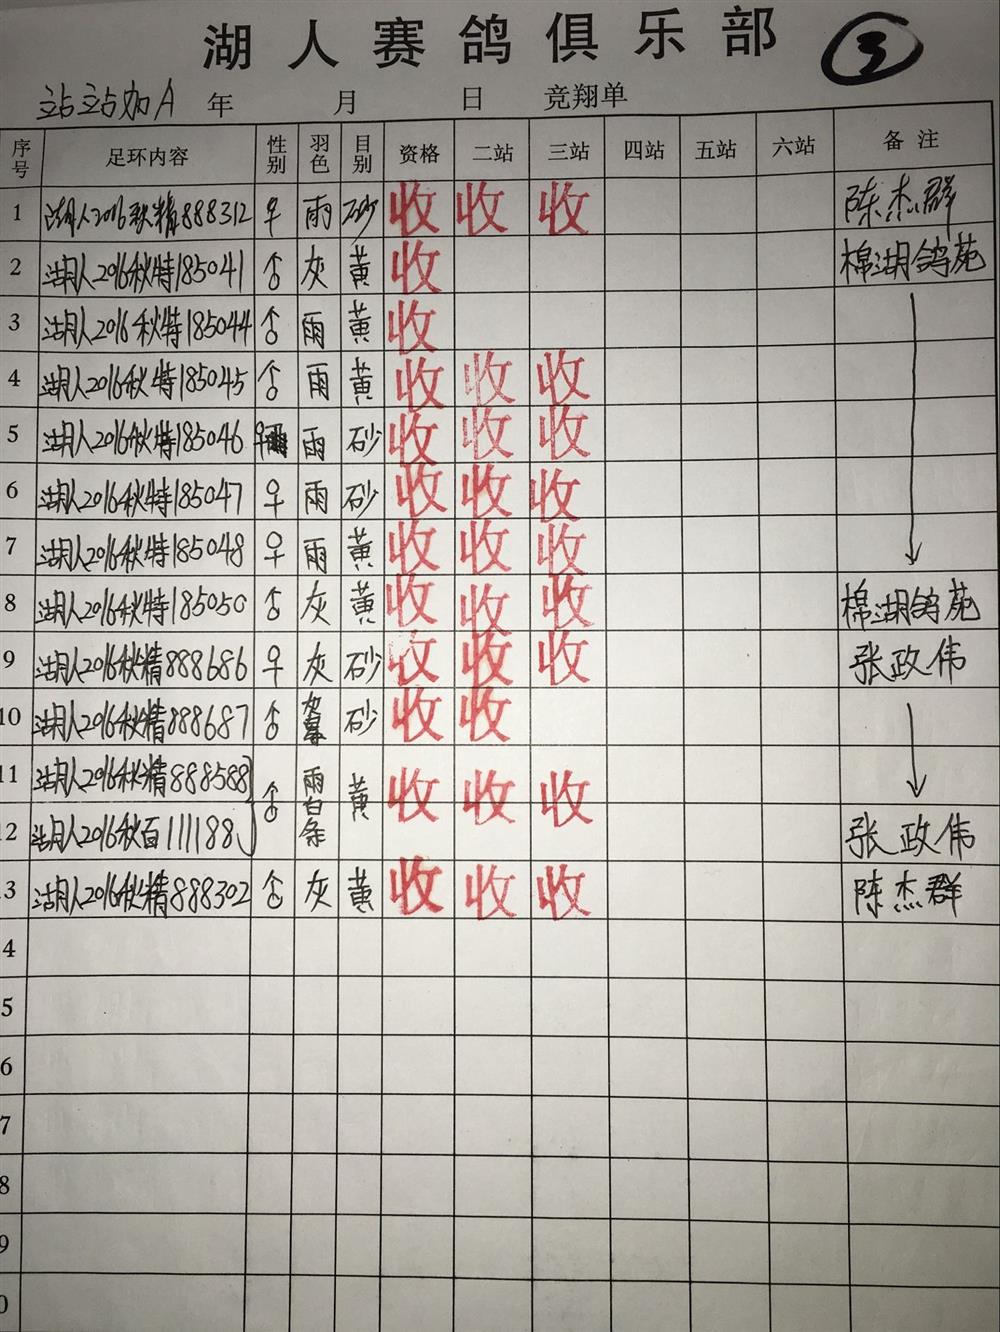 湖人赛鸽俱乐部 3
站站加A 年 月 日 竞翔单
序号 足环内容 性别 羽色 目别 资格 二站 三站 四站 五站 六站 备注
1 湖人2016秋精888312 ♀ 雨 砂 收 收 收 陈杰群
2 湖人2016秋特185041 ♂ 灰 黄 收 棉湖鸽苑
3 湖人2016秋特185044 ♂ 雨 黄 收
4 湖人2016秋特185045 ♂ 雨 黄 收 收 收
5 湖人2016秋特185046 ♀ 雨 砂 收 收 收
6 湖人2016秋特185047 ♀ 雨 砂 收 收 收
7 湖人2016秋特185048 ♀ 雨 黄 收 收 收
8 湖人2016秋特185050 ♂ 灰 黄 收 收 收 棉湖鸽苑
9 湖人2016秋精888686 ♀ 灰 砂 收 收 收 张政伟
10 湖人2016秋精888687 ♂ 砂 收 收
11 湖人2016秋精888588 ♂ 雨白条 黄 收 收 收
12 湖人2016秋百111188 张政伟
13 湖人2016秋精888302 ♂ 灰 黄 收 收 收 陈杰群
4
5
6
7
8
9
0